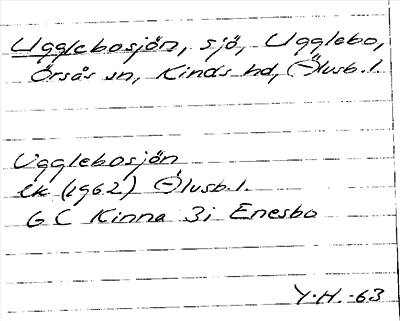 Ugglebosjön, sjö, Ugglebo,
Örsås sn, Kinds hd, Älvsb. l.
Ugglebosjön
Ek (1962) Älvsb. l.
GC Kinna 3i Enesbo
Y.H. -63